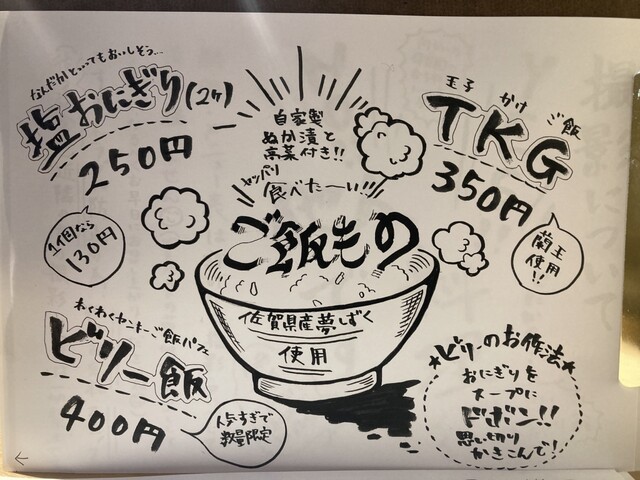 なんだかとってもおいしそう…
塩おにぎり(2ケ)
250円
1個なら
130円
自家製
ぬか漬と
高菜付き!!
ヤッパリ
食べた〜い!!
玉子 かけ ご飯
TKG
350円
蘭王
使用!!
ご飯もの
佐賀県産夢しずく
使用
わくわくヤンキーご飯パフェ
ビリー飯
400円
人気すぎて
数量限定
★ビリーのお作法★
おにぎりを
スープに
ドボン!!
思い切り
かきこんで!
←